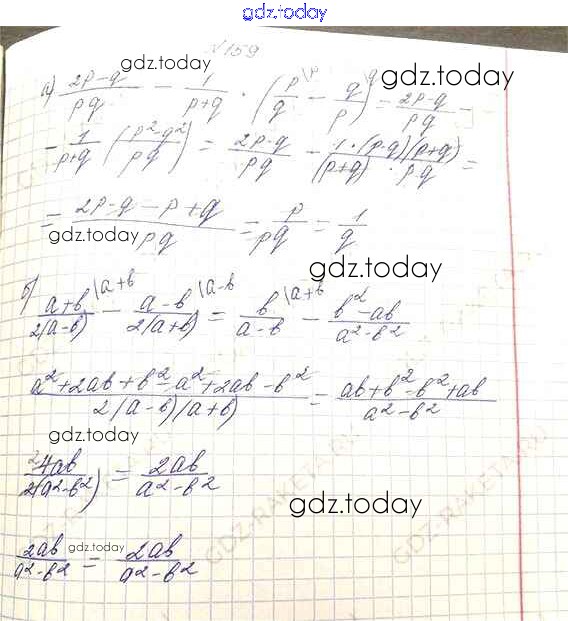 gdz.today
№159
gdz.today
gdz.today
а) (2p-q)/(pq) - 1/(p+q) · (p/q \p - q/p \q) = (2p-q)/(pq) -
- 1/(p+q) (p²-q²)/(pq) = (2p-q)/(pq) - (1·(p-q)(p+q))/((p+q)·pq) =
= (2p-q-p+q)/(pq) = p/(pq) = 1/q
gdz.today
gdz.today
б) (a+b)/(2(a-b)) \a+b - (a-b)/(2(a+b)) \a-b = b/(a-b) \a+b - (b²-ab)/(a²-b²)
(a²+2ab+b²-a²+2ab-b²)/(2(a-b)(a+b)) = (ab+b²-b²+ab)/(a²-b²)
gdz.today
4ab/(2(a²-b²)) = 2ab/(a²-b²)
gdz.today
gdz.today
2ab/(a²-b²) = 2ab/(a²-b²)